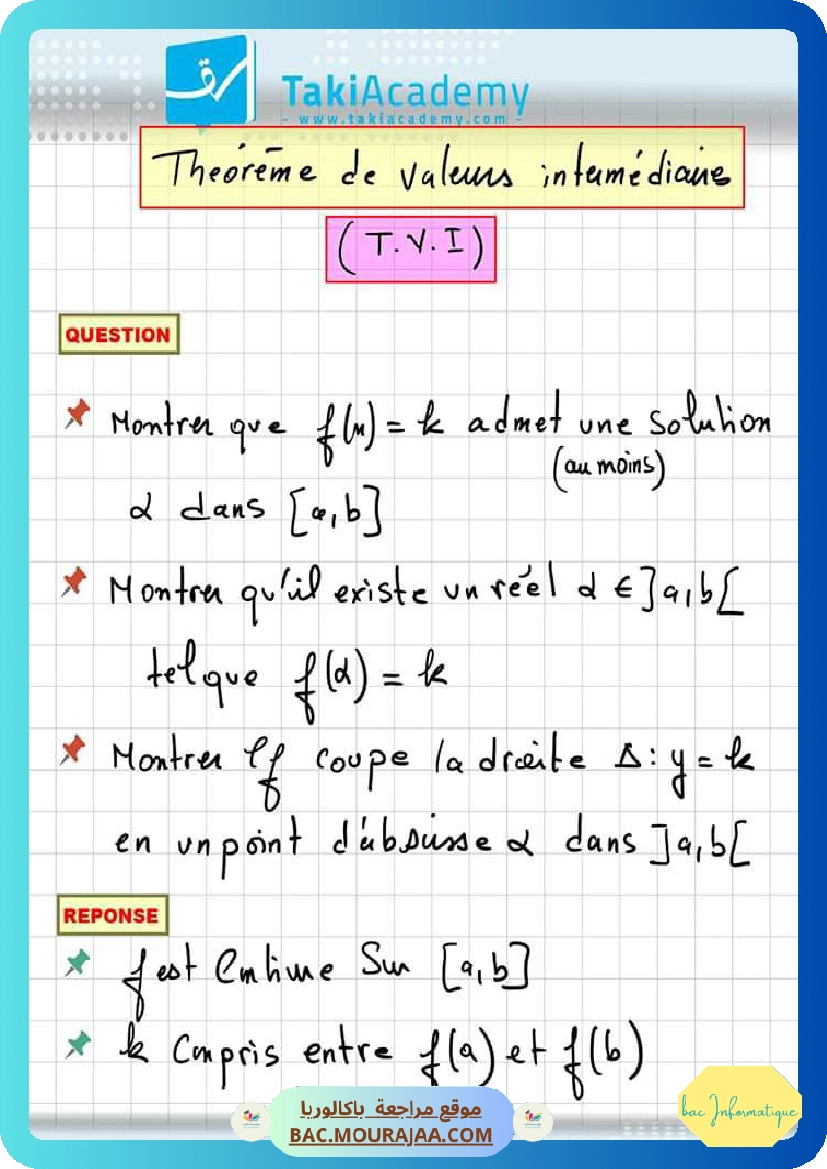 TakiAcademy
- www.takiacademy.com -
Théorème de valeurs intermédiaire
(T.V.I)
QUESTION
Montrer que f(x) = k admet une solution
(au moins)
α dans [a,b]
Montrer qu'il existe un réel α ∈ ]a,b[
tel que f(α) = k
Montrer ℓf coupe la droite Δ: y = k
en un point d'abscisse α dans ]a,b[
REPONSE
f est Continue Sur [a,b]
k Compris entre f(a) et f(b)
موقع مراجعة باكالوريا
BAC.MOURAJAA.COM
bac Informatique